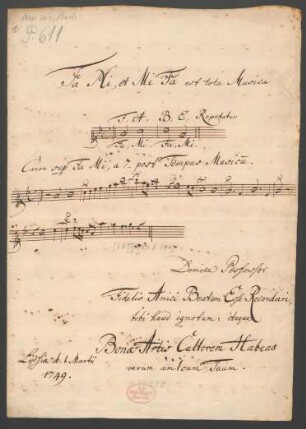 P. 611
Fa Mi, et Mi Fa est tota Musica
F. A. B. E. Repetatur
Fa, Mi, Fa, Mi
Canon sup Fa Mi, a 7. post Tempus Musicũ.
Domine Possessor
Fidelis Amici Beatum Esse Recordari,
tibi haud ignotum: itaque
Bonæ Artis Cultorem Habeas
verum amicum Tuum.
Lipsiæ d. 1 Martii
1749.